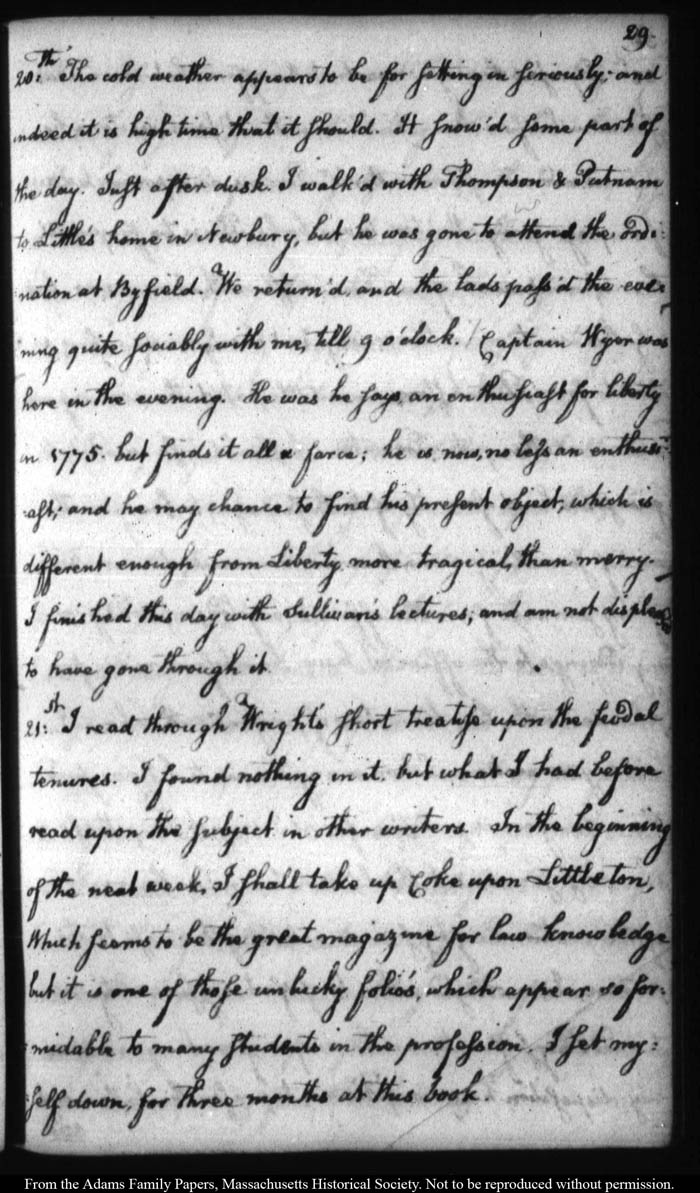 29.
20:th The cold weather appears to be for setting in seriously; and
indeed it is high time that it should. It snow'd some part of
the day. Just after dusk. I walk'd with Thompson & Putnam
to Little's home in Newbury, but he was gone to attend the ordi:
:nation at Byfield. We return'd, and the lads pass'd the eve:
:ning quite sociably with me, till 9 o'clock. Captain Wyer was
here in the evening. He was he says, an enthusiast for liberty
in 1775. but finds it all a farce; he is now, no less an enthusi:
:ast; and he may chance to find his present object, which is
different enough from Liberty, more tragical, than merry.
I finished this day with Sullivan's lectures; and am not displeased
to have gone through it.
21:st I read through Wright's short treatise upon the feodal
tenures. I found nothing in it, but what I had before
read upon the subject in other writers. In the beginning
of the next week, I shall take up Coke upon Littleton,
Which seems to be the great magazine for law knowledge
but it is one of those unlucky folio's, which appear so for:
:midable to many students in the profession. I set my:
:self down, for three months at this book.
From the Adams Family Papers, Massachusetts Historical Society. Not to be reproduced without permission.